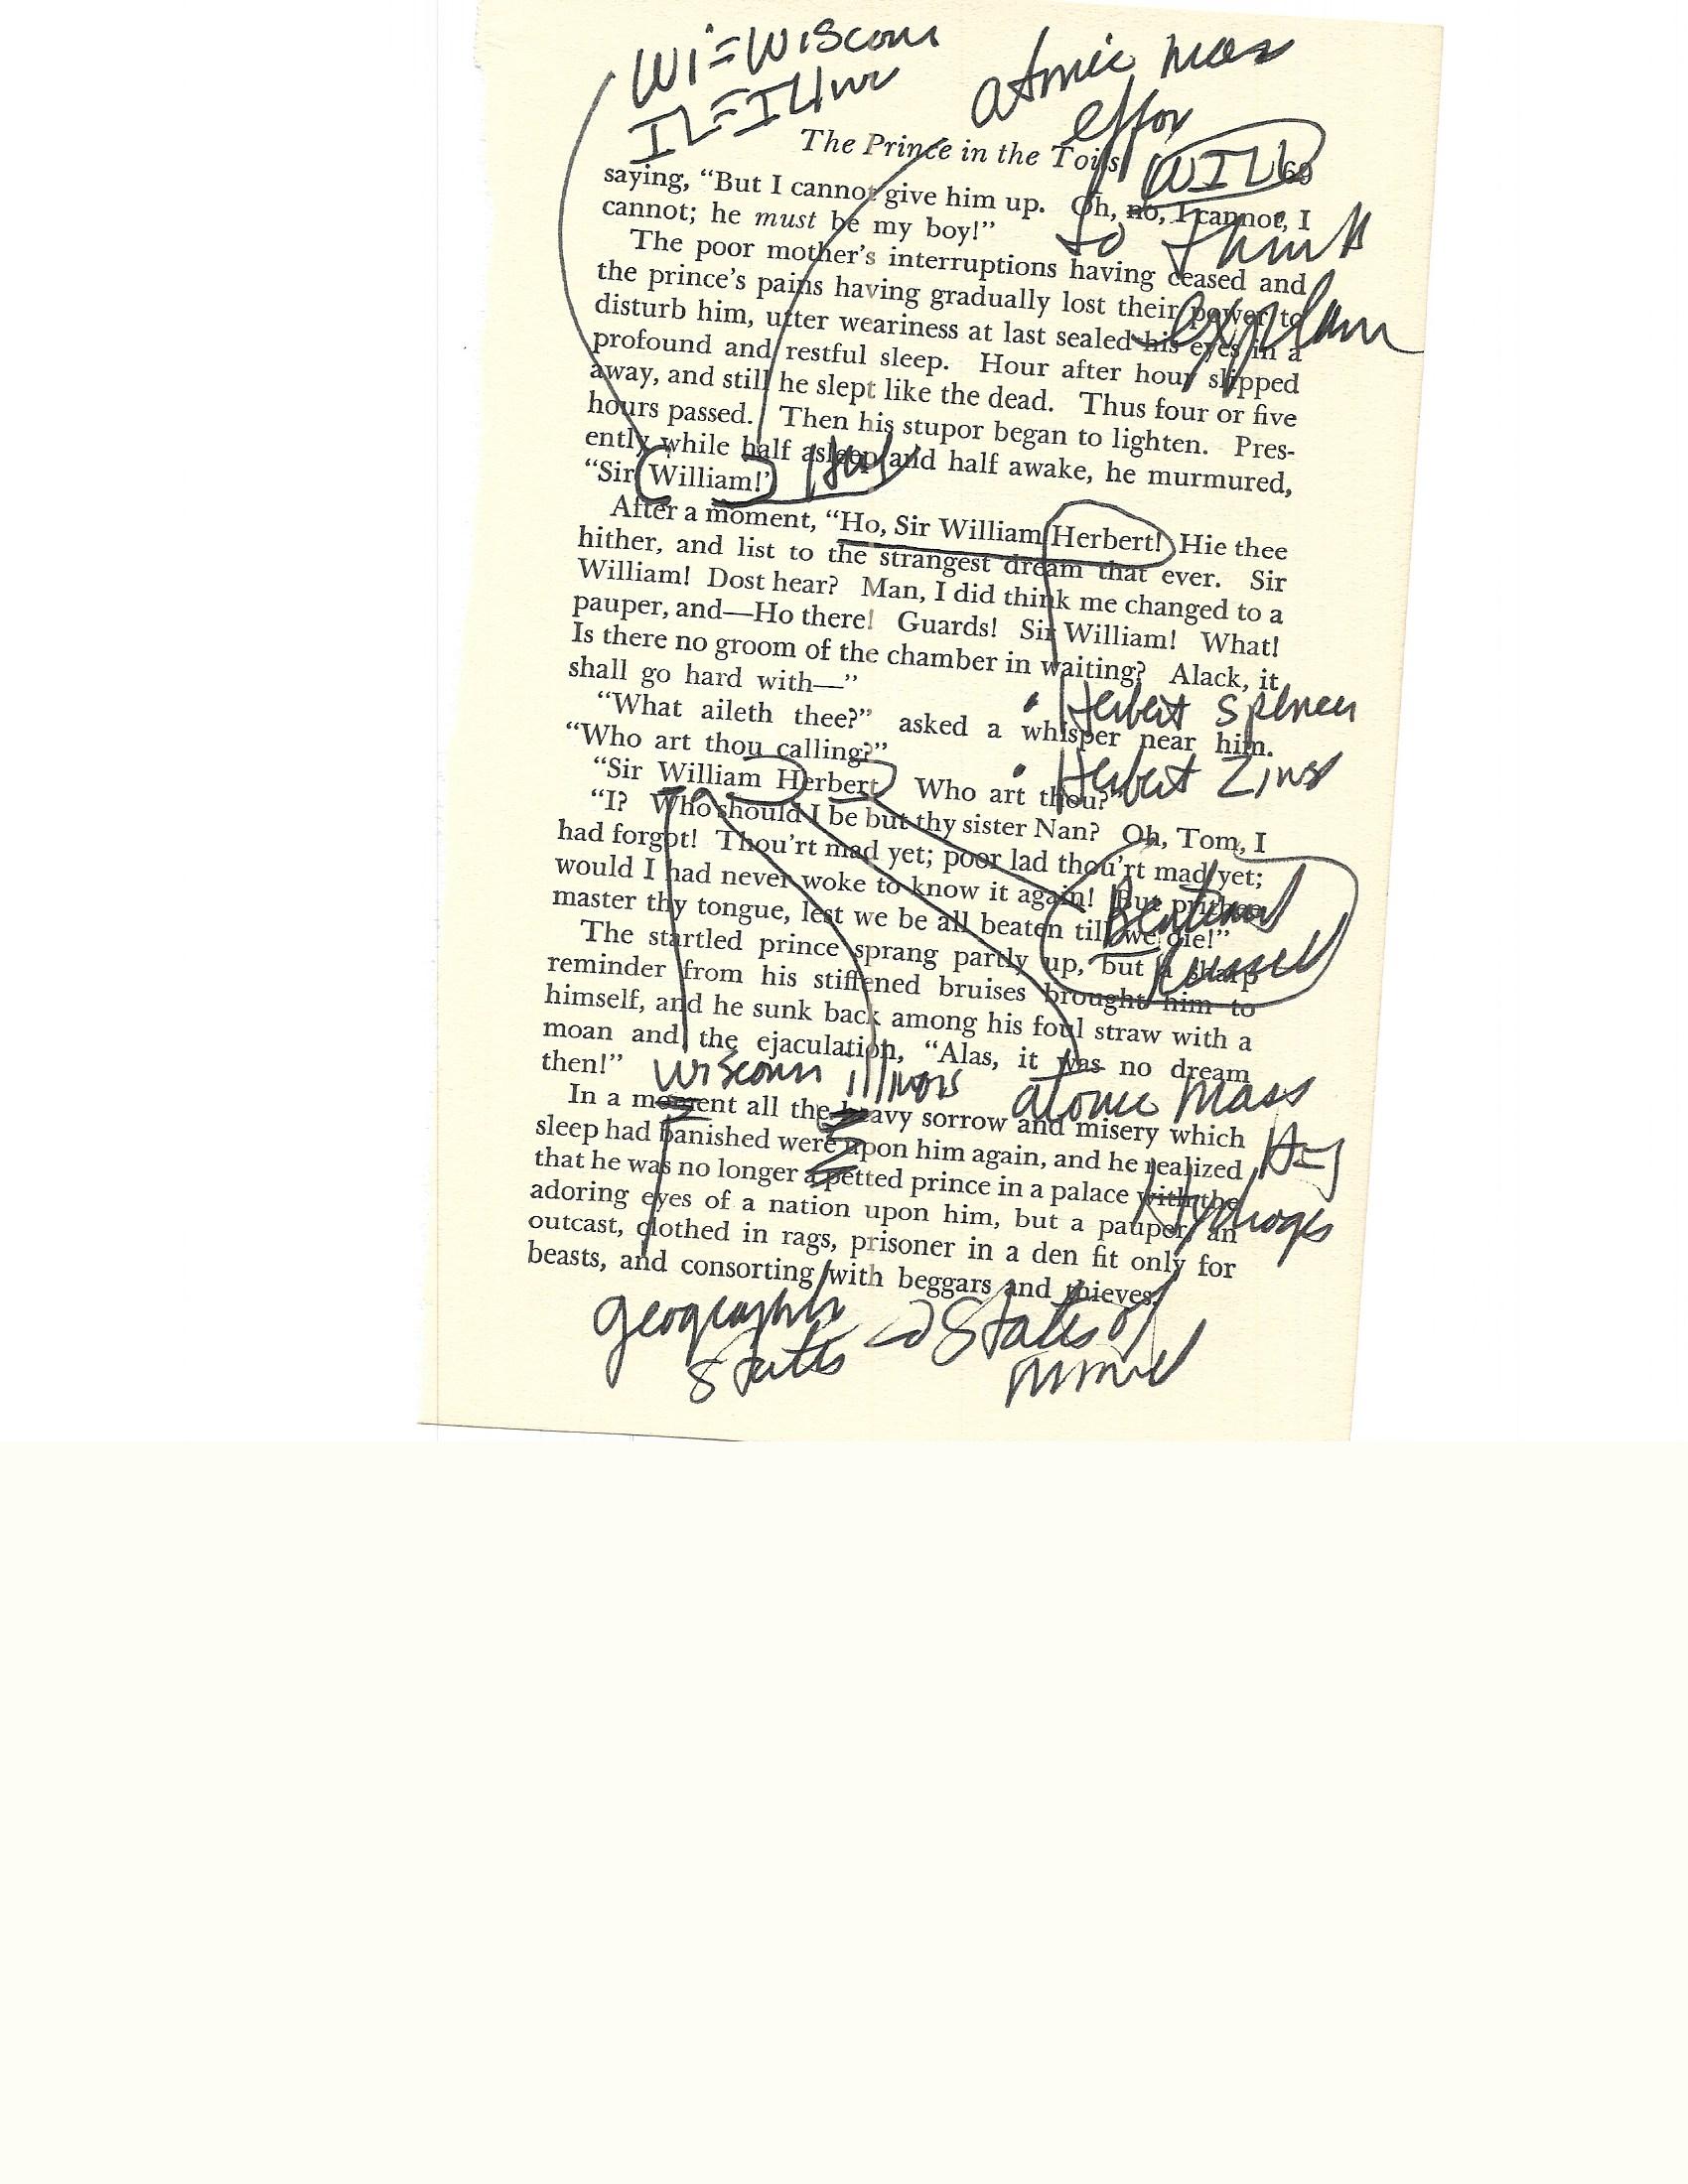 Wi=Wiscon
IL=ILLin
atomic mass
effor
The Prince in the Toils 69
WIL
saying, “But I cannot give him up. Oh, no, I cannot, I
to think
cannot; he must be my boy!”
The poor mother’s interruptions having ceased and
the prince’s pains having gradually lost their power to
explain
disturb him, utter weariness at last sealed his eyes in a
profound and restful sleep. Hour after hour slipped
away, and still he slept like the dead. Thus four or five
hours passed. Then his stupor began to lighten. Pres-
ently while half asleep and half awake, he murmured,
“Sir William!”
After a moment, “Ho, Sir William Herbert! Hie thee
hither, and list to the strangest dream that ever. Sir
William! Dost hear? Man, I did think me changed to a
pauper, and—Ho there! Guards! Sir William! What!
Is there no groom of the chamber in waiting? Alack, it
shall go hard with—”
Herbert Spencer
“What aileth thee?” asked a whisper near him.
“Who art thou calling?”
Herbert Zins
“Sir William Herbert. Who art thou?”
“I? Who should I be but thy sister Nan? Oh, Tom, I
had forgot! Thou’rt mad yet; poor lad thou’rt mad yet;
would I had never woke to know it again! But prithee
master thy tongue, lest we be all beaten till we die!”
Bertrand
Russell
The startled prince sprang partly up, but a sharp
reminder from his stiffened bruises brought him to
himself, and he sunk back among his foul straw with a
moan and the ejaculation, “Alas, it was no dream
then!”
Wisconsin illinois atomic mass
In a moment all the heavy sorrow and misery which
sleep had banished were upon him again, and he realized
that he was no longer a petted prince in a palace with the
adoring eyes of a nation upon him, but a pauper, an
outcast, clothed in rags, prisoner in a den fit only for
beasts, and consorting with beggars and thieves.
states states of
mind